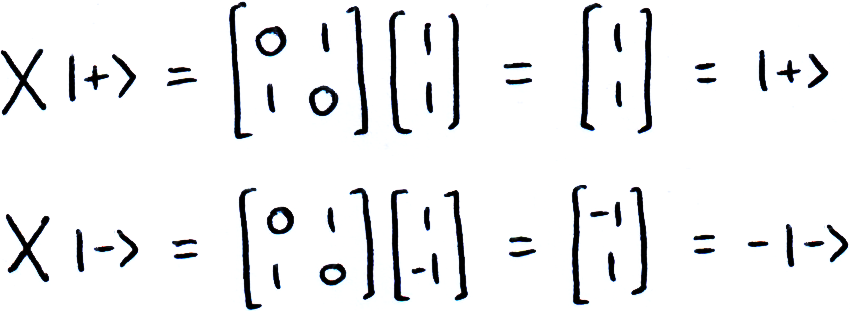 X |+> = [0 1; 1 0] [1; 1] = [1; 1] = |+>
X |-> = [0 1; 1 0] [1; -1] = [-1; 1] = -|->